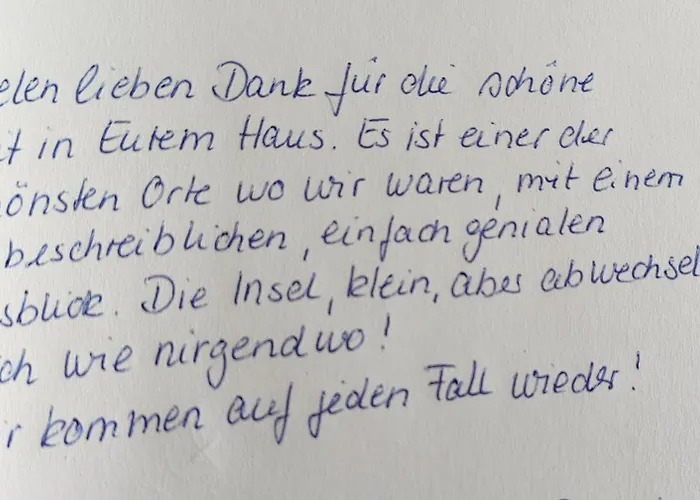 elen lieben Dank für die schöne
it in Eurem Haus. Es ist einer der
önsten Orte wo wir waren, mit einem
beschreiblichen, einfach genialen
sblick. Die Insel, klein, aber abwechsel
ch wie nirgendwo!
r kommen auf jeden Fall wieder!